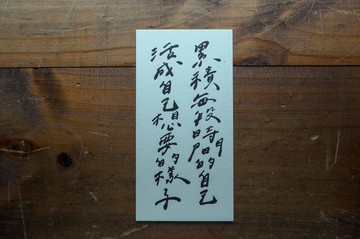 累積每段時間的自己
活成自己想要的樣子